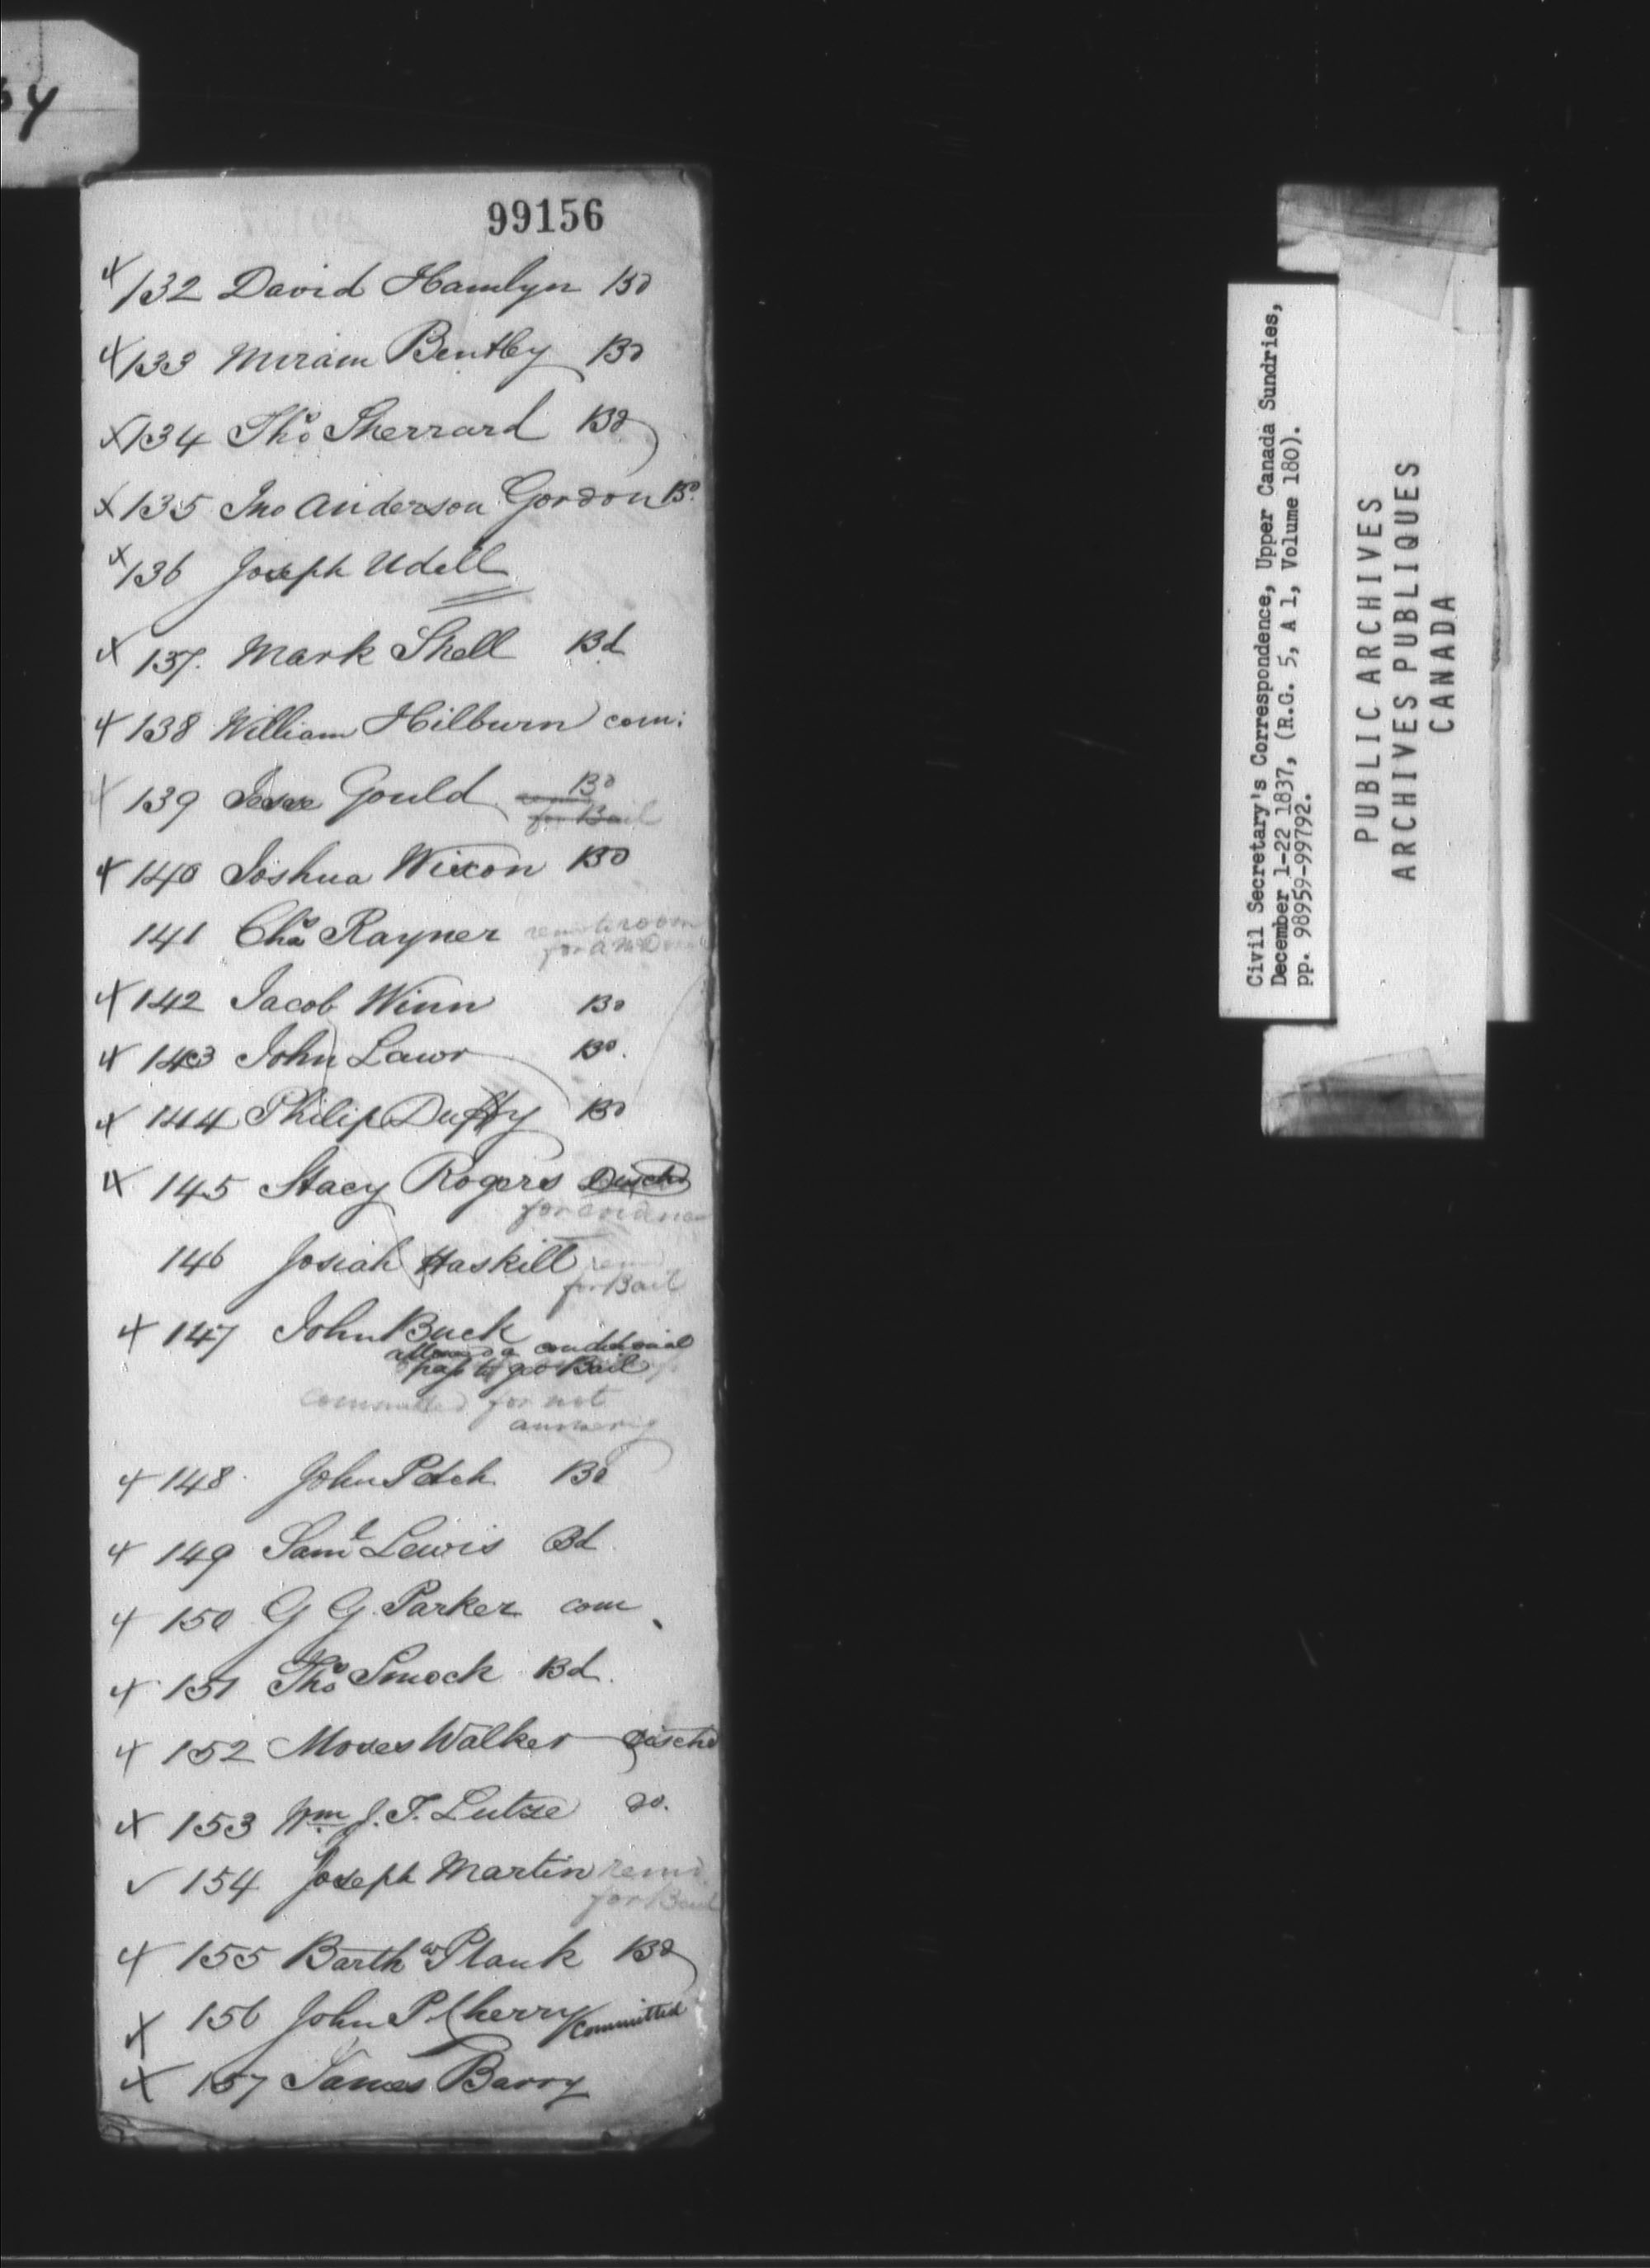 99156
x 132 David Hamlyn Bd
x 133 Miram Bentley Bd
x 134 Thos Sherrard Bd
x 135 Jno Anderson Gordon Bd
x 136 Joseph Udell
x 137. Mark Shell Bd
x 138 William Hilburn com:
x 139 Jesse Gould Bd
for Bail
x 140 Joshua Wixon Bd
141 Chas Rayner
for
x 142 Jacob Winn Bd
x 143 John Lawr Bd.
x 144 Philip Duffy Bd
x 145 Stacy Rogers Dischd
for evidence
146 Josiah Haskill remd
for Bail
x 147 John Buck
allowed a conditional
pass to go Bail
committed for not
answering
x 148 John Petch Bd
x 149 Saml Lewis Bd
x 150 G G. Parker com
x 151 Thos Smock Bd.
x 152 Moses Walker Dischd
x 153 Wm. J. T. Lutze do.
✓ 154 Joseph Martin remd.
for Bail
x 155 Barthw Plank Bd
x 156 John P Cherry Committed
x 157 James Barry
Civil Secretary's Correspondence, Upper Canada Sundries,
December 1-22 1837, (R.G. 5, A 1, Volume 180).
pp. 98959-99792.
PUBLIC ARCHIVES
ARCHIVES PUBLIQUES
CANADA